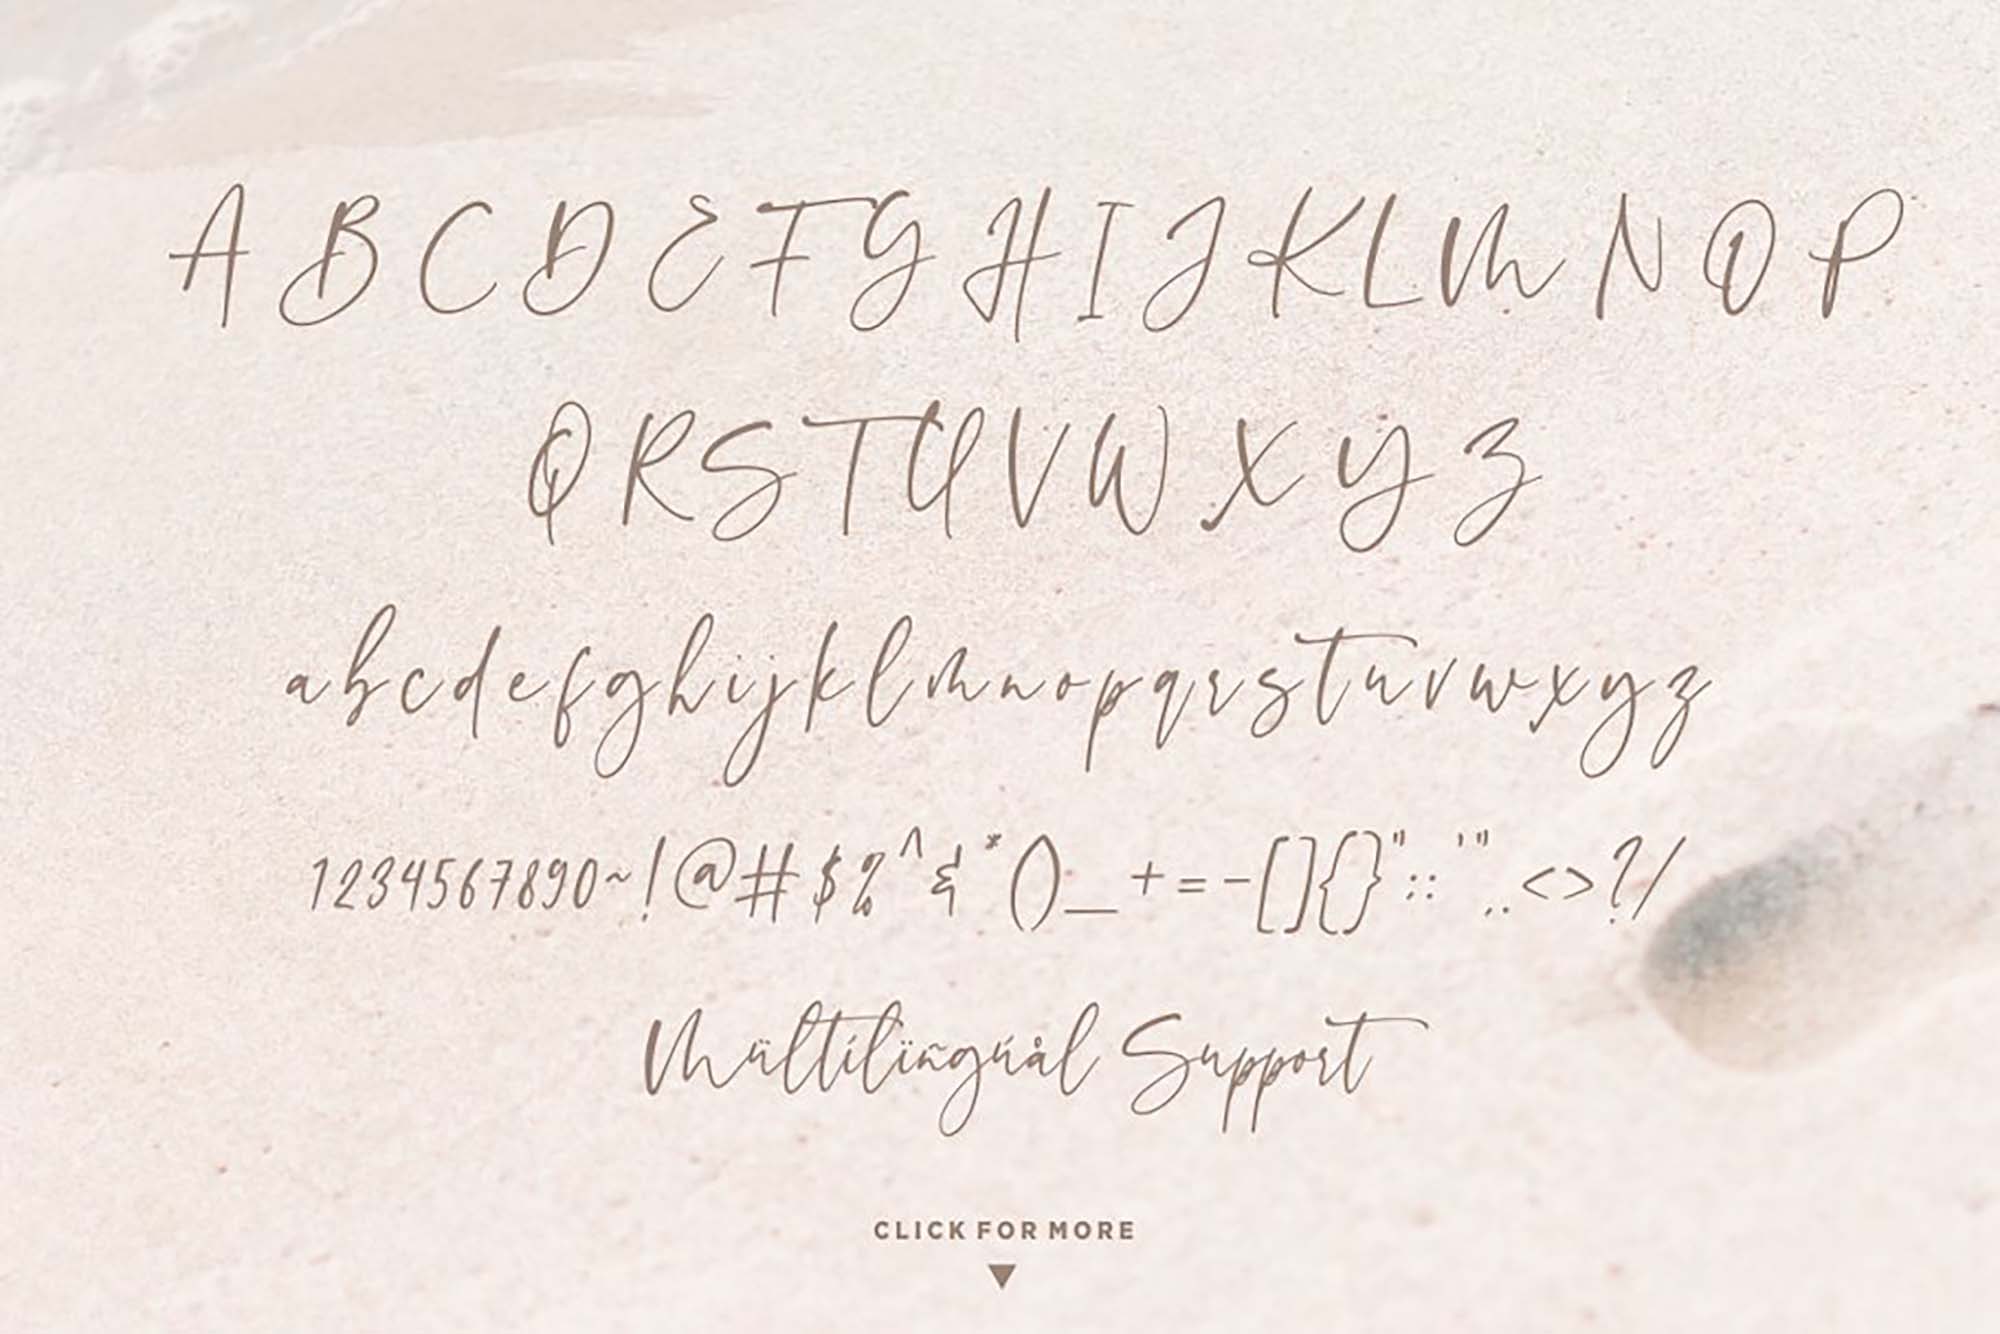 A B C D E F G H I J K L M N O P
Q R S T U V W X Y Z
a b c d e f g h i j k l m n o p q r s t u v w x y z
1234567890~!@#$%^&*()_+=-[]{}":;'",.<>?/
Mültílïñgúål Support
CLICK FOR MORE